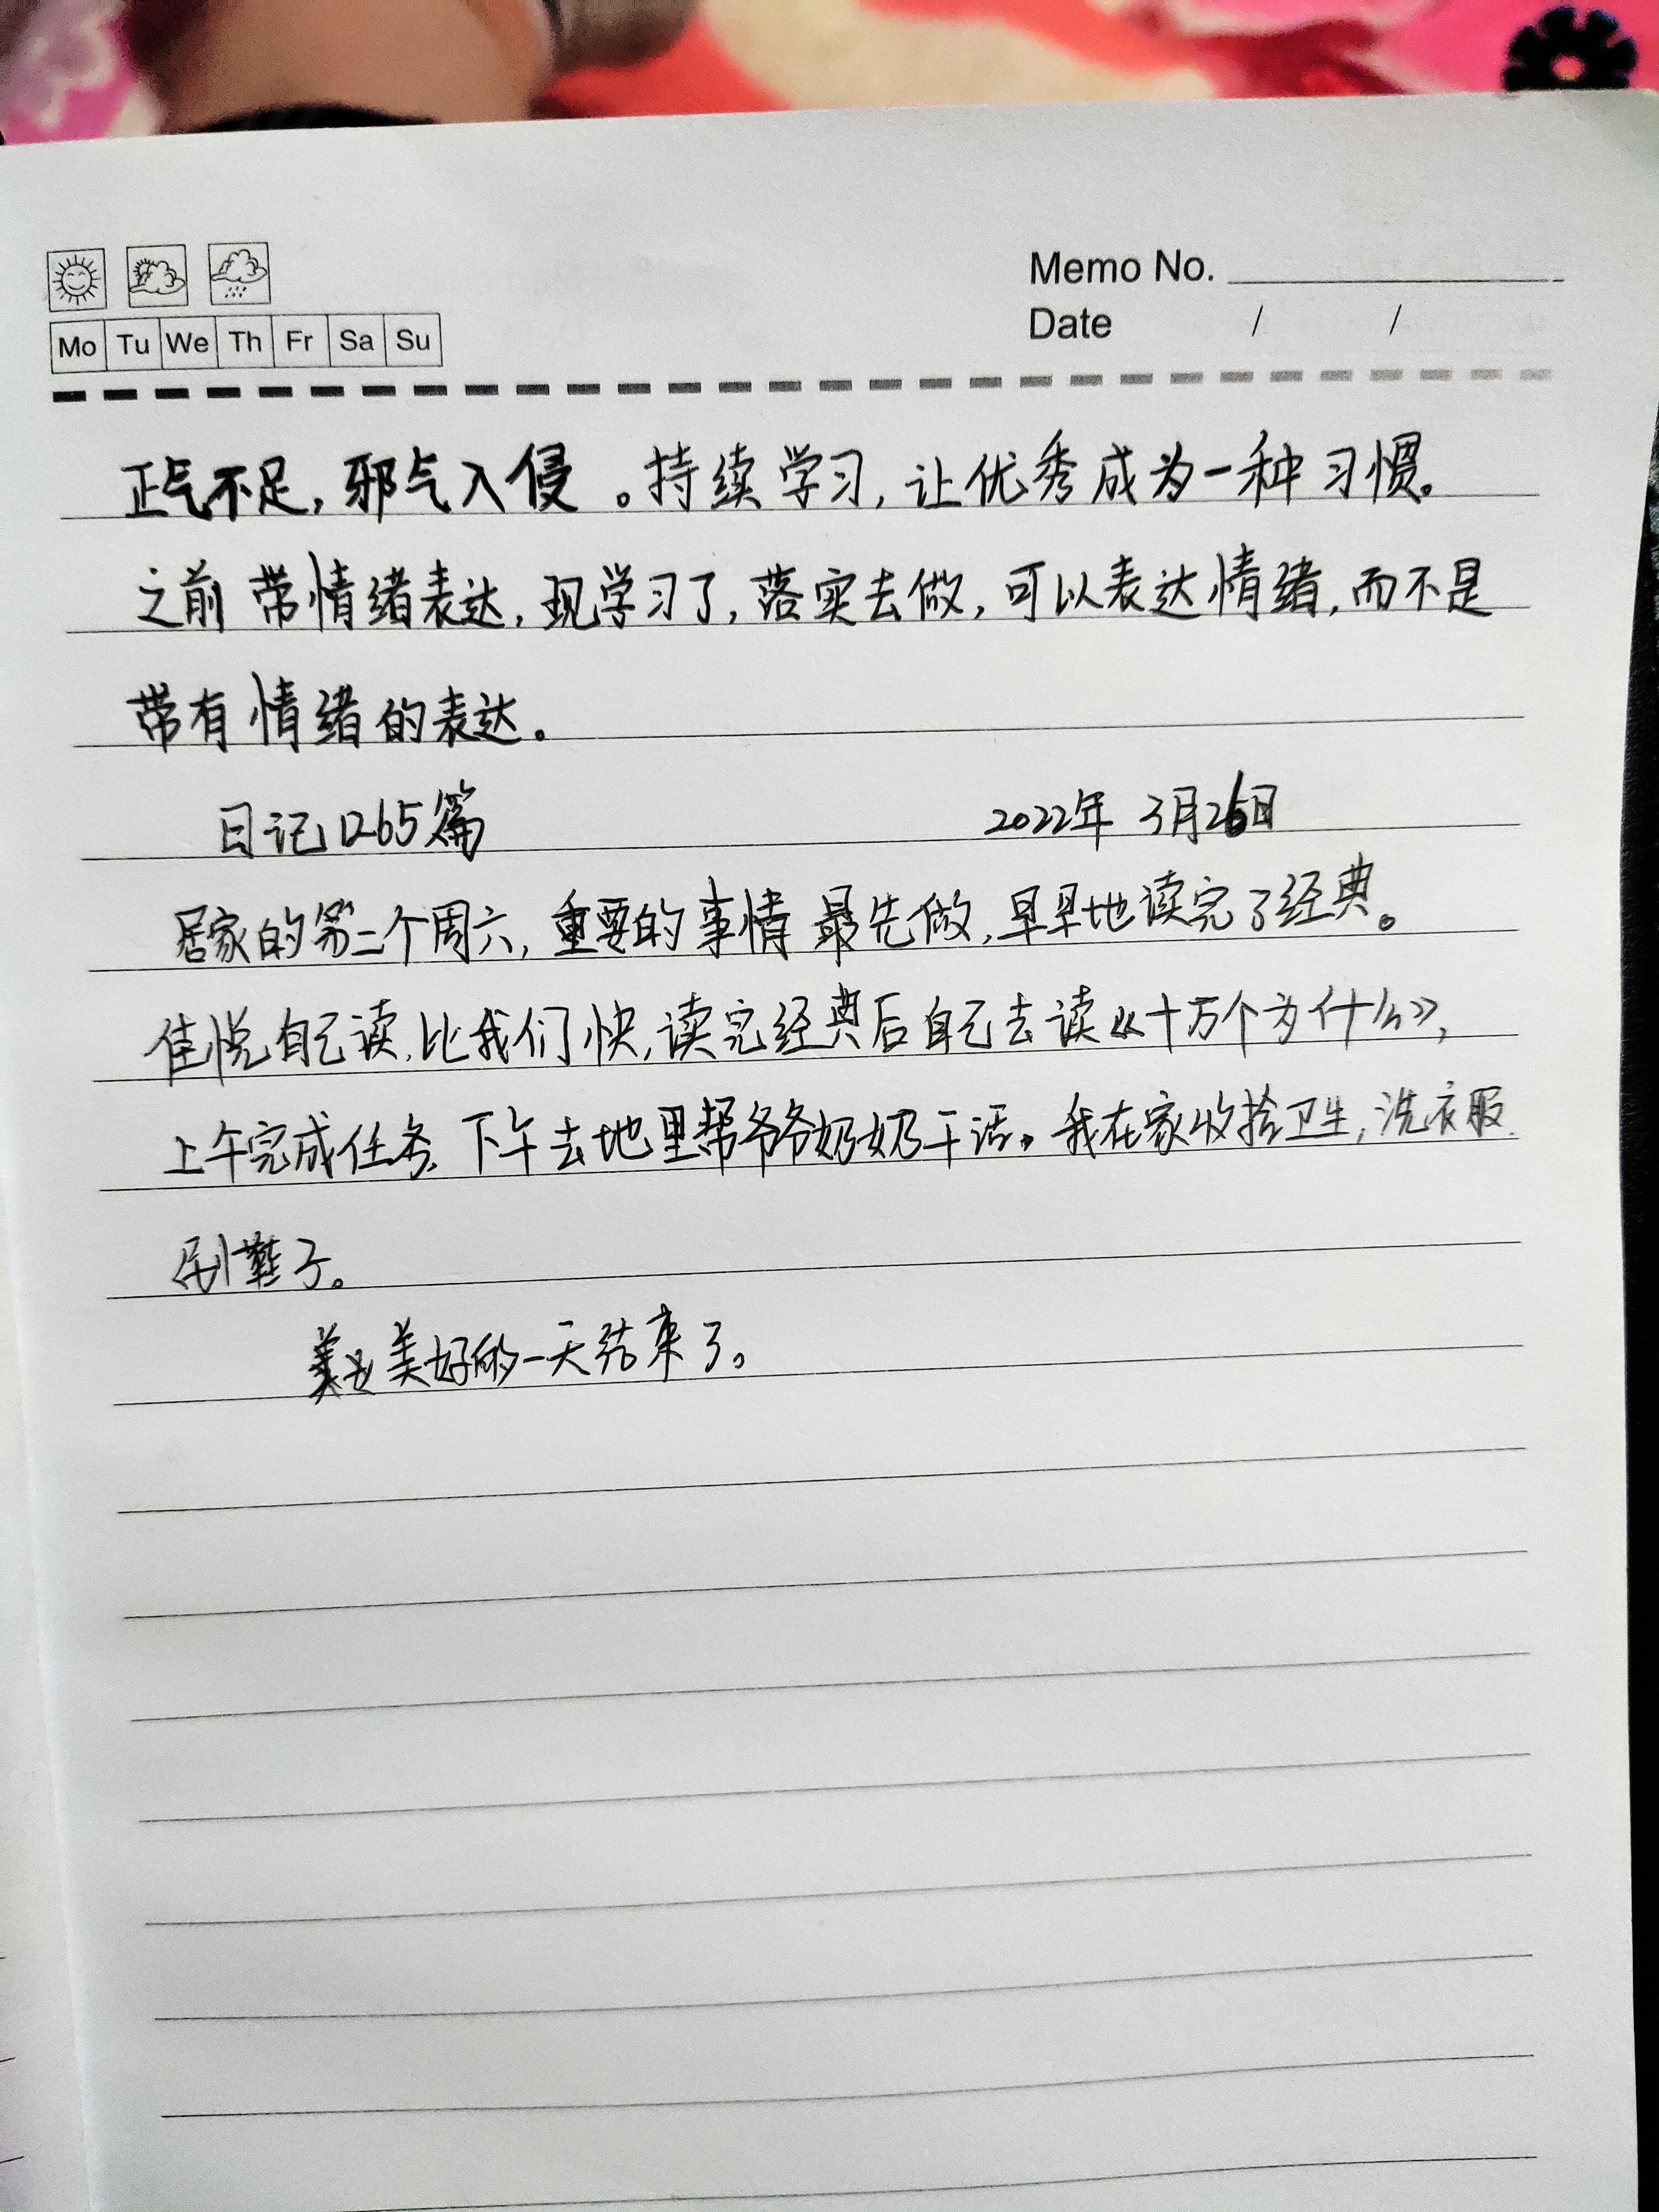 Memo No.
Mo Tu We Th Fr Sa Su
Date / /
正气不足，邪气入侵。持续学习，让优秀成为一种习惯。
之前带情绪表达，现学习了，落实去做，可以表达情绪，而不是
带有情绪的表达。
日记1265篇 2022年3月26日
居家的第二个周六，重要的事情最先做，早早地读完了经典。
佳悦自己读，比我们快，读完经典后自己去读《十万个为什么》，
上午完成任务，下午去地里帮爷爷奶奶干活。我在家收拾卫生，洗衣服，
刷鞋子。
美好的一天结束了。